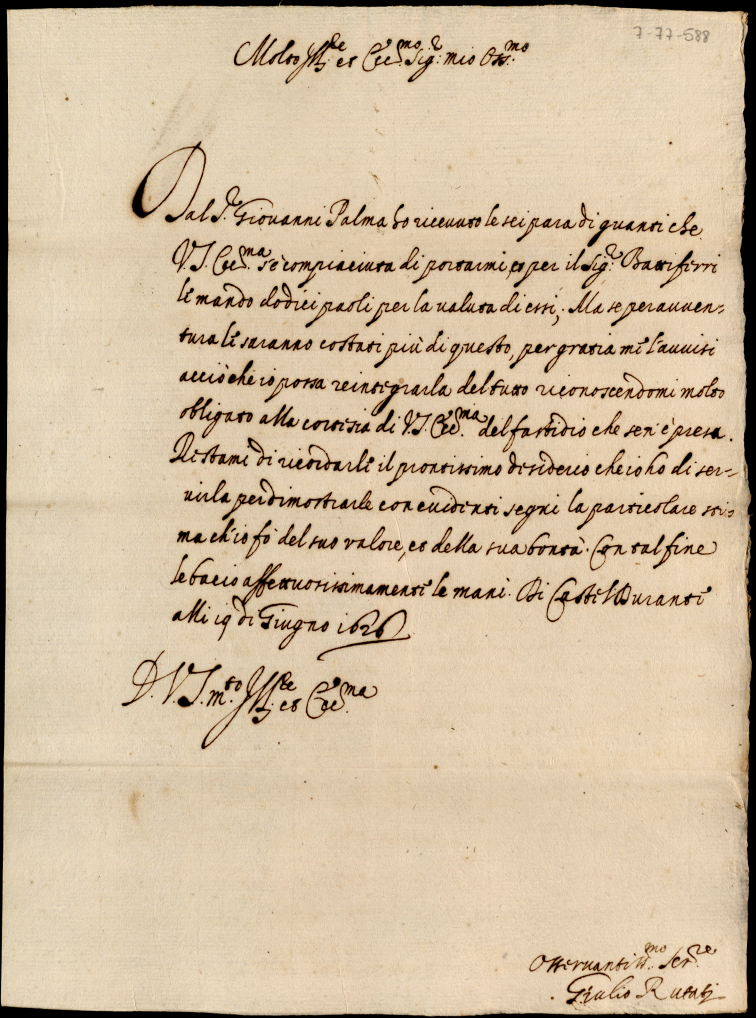 7-77-588
Molto Ill.re et Ecc.mo Sig.r mio Oss.mo
Dal S.r Giovanni Palma ho ricevuto le sei para di guanti che
V.S. Ecc.ma s'è compiaciuta di portarmi, et per il Sig.r Battiferri
li mando dodici paoli per la valuta di essi; Ma se per avven-
tura li saranno costati più di questo, per gratia mi l'avvisi
acciò che io possa reintegrarla del tutto riconoscendomi molto
obligato alla cortesia di V.S. Ecc.ma del fastidio che sen'è presa.
Restami di ricordarli il prontissimo desiderio che io ho di ser-
virla per dimostrarle con evidenti segni la particolare sti-
ma ch'io fò del suo valore, et della sua bontà. Con tal fine
le bacio affettuosissimamente le mani. Di Castel Duranti
alli 19 di Giugno 1626
D. V. S. m.to Ill.re et Ecc.ma
Osservantiss.mo Ser.re
Giulio